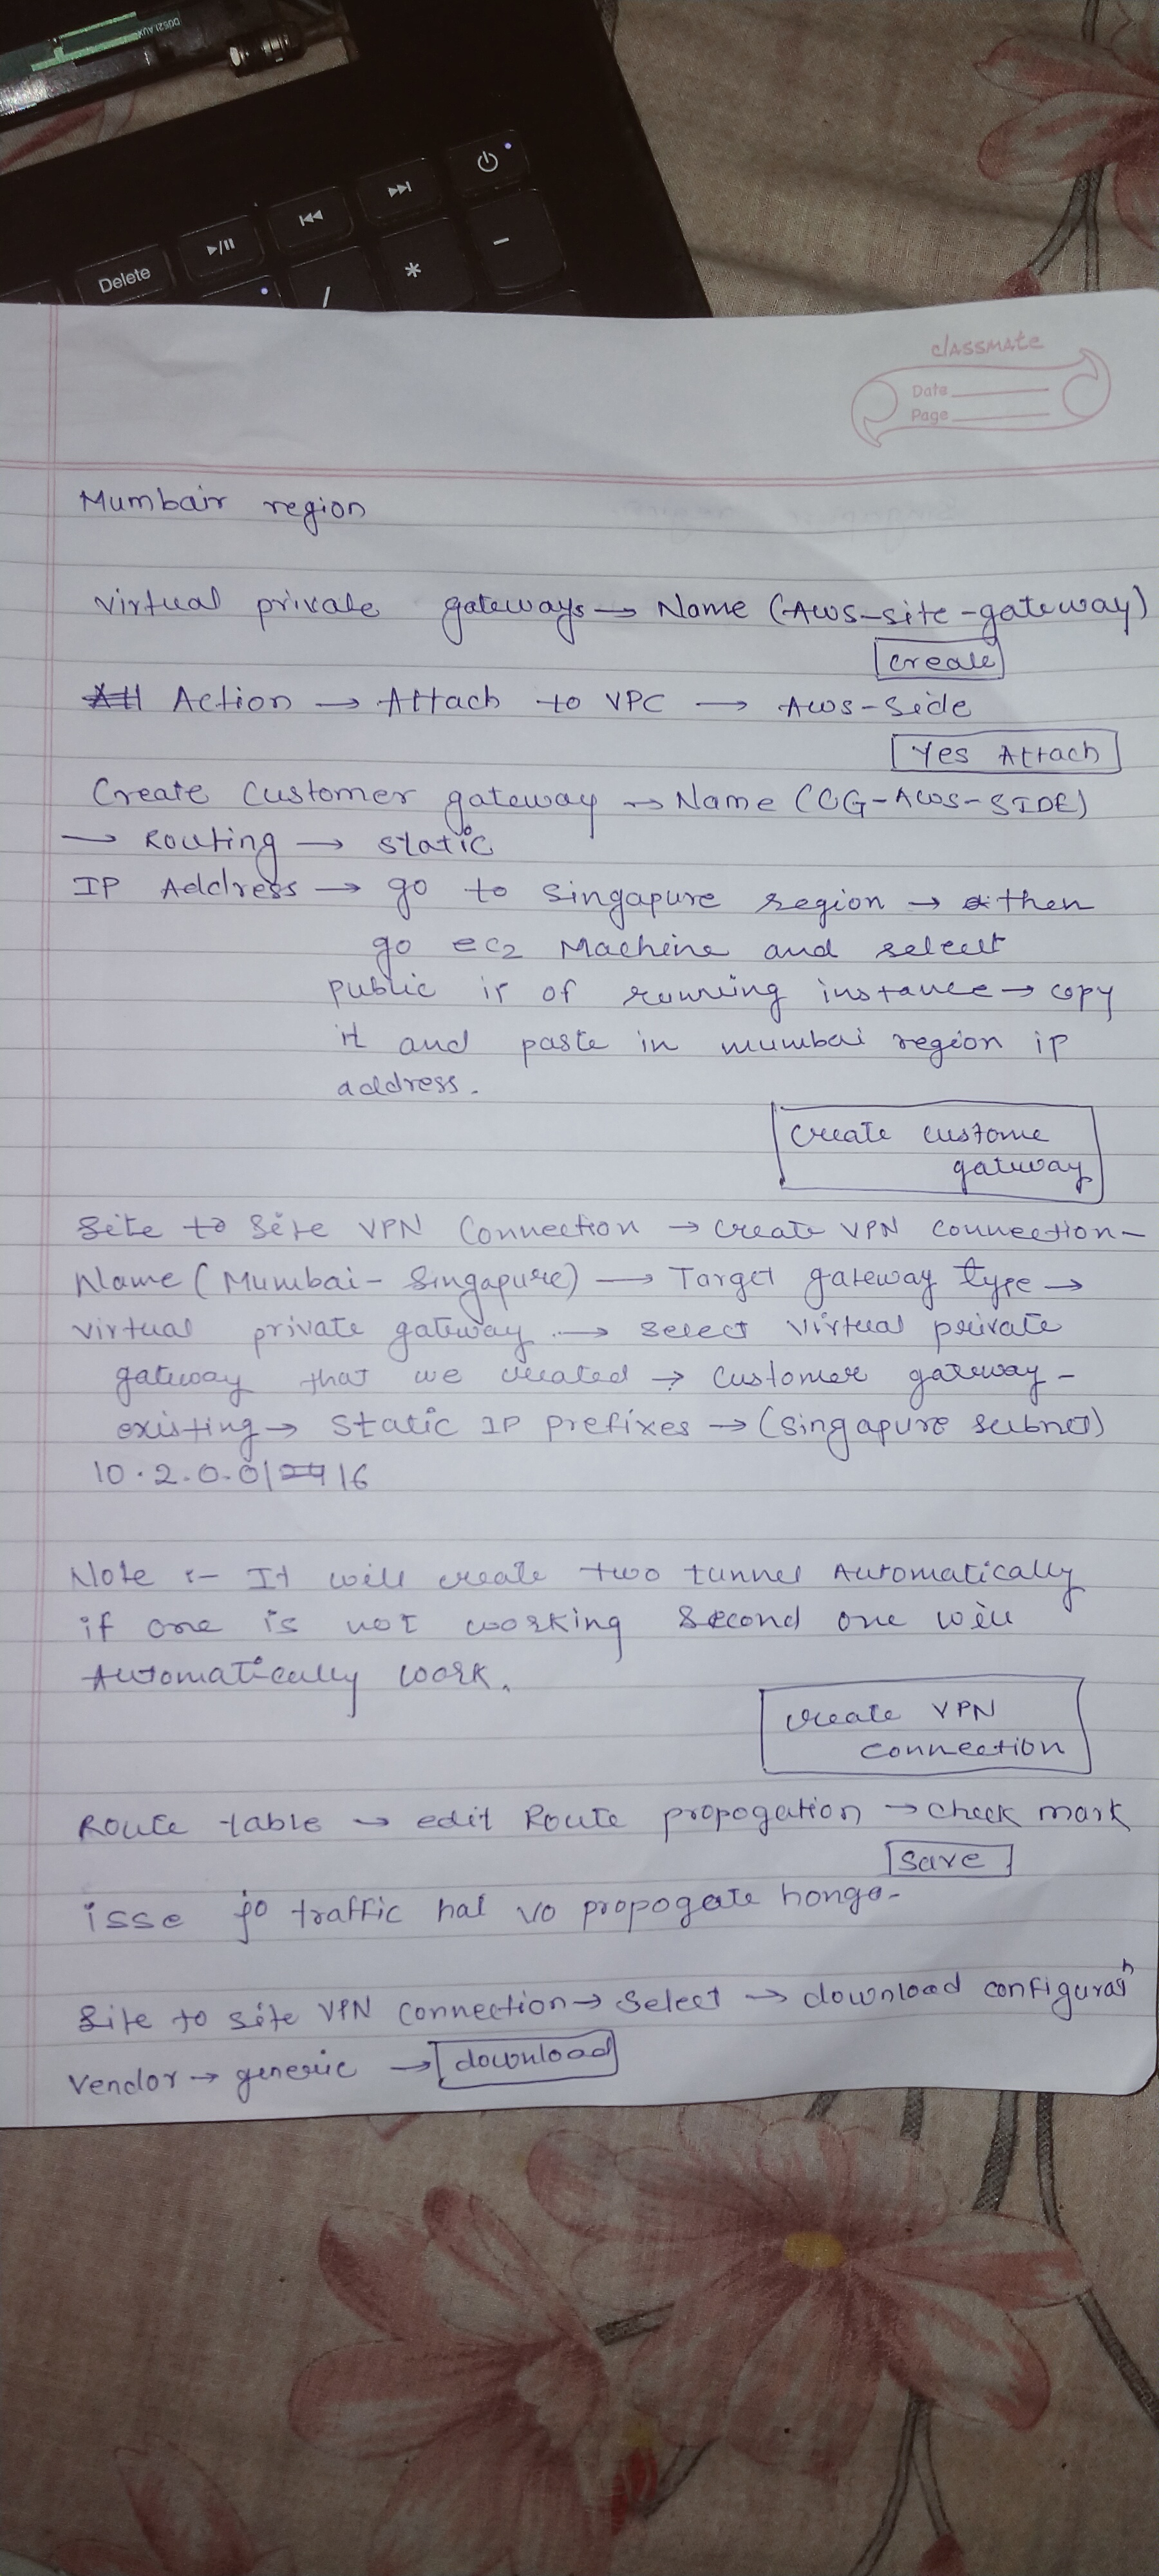 Delete
/
*
-
classmate
Date
Page
Mumbair region
virtual private gateways → Name (Aws-site-gateway)
create
Action → Attach to VPC → Aws-side
Yes Attach
Create Customer gateway → Name (CG-AWS-SIDE)
→ Routing → static
IP Address → go to singapure region → then
go ec2 Machine and select
public ip of running instance → copy
it and paste in mumbai region ip
address.
create custome
gateway
Site to Site VPN Connection → create VPN connection -
Name (Mumbai - Singapure) → Target gateway type →
virtual private gateway → select virtual private
gateway that we created → customer gateway -
existing → static IP prefixes → (singapure subnet)
10.2.0.0/16
Note :- It will create two tunnel Automatically
if one is not working second one will
Automatically work.
create VPN
connection
Route table → edit Route propogation → check mark
save
isse jo traffic hai vo propogate honga -
Site to site VPN connection → Select → download configuratn
Vendor → generic → download